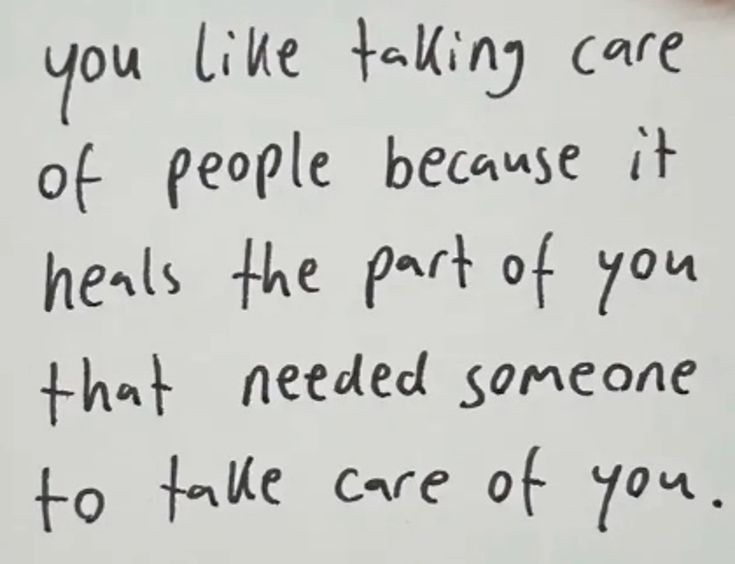 you like taking care
of people because it
heals the part of you
that needed someone
to take care of you.